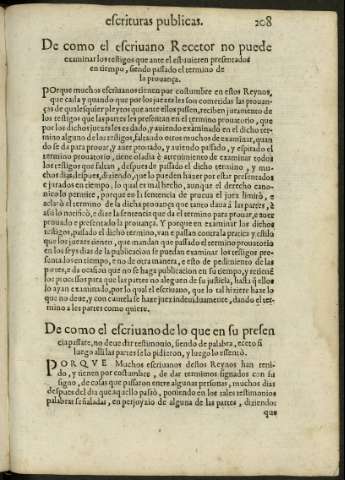 escrituras publicas. 208
De como el escriuano Recetor no puede
examinar los testigos que ante el estuuieren presentados
en tiempo, siendo passado el termino de
la prouança.
Porque muchos escriuanos tienen por costumbre en estos Reynos,
que cada y quando que por los juezes les son cometidas las prouan-
ças de qualesquier pleytos que ante ellos passen, reciben juramento de
los testigos que las partes les presentan en el termino prouatorio, que
por los dichos juezes les es dado, y auiendo examinado en el dicho ter-
mino algunos de los testigos, faltando otros muchos de examinar, quan
do se da para prouar, y auer prouado, y auiendo passado, y espirado el
termino prouatorio, tiene osadia & atreuimiento de examinar todos
los testigos que faltan, despues de passado el dicho termino, y mu-
chos dias despues, diziendo, que lo pueden hazer por estar presentados
e jurados en tiempo, lo qual es mal hecho, aunque el derecho cano-
nico lo permite, porque en la sentencia de prueua el juez limitò, e
aclarò el termino de la dicha prouança que tanto daua à las partes, è
assi lo notificò, e dize la sentencia que da el termino para prouar, e auer
prouado e presentado la prouança. Y porque en examinar los dichos
testigos, passado el dicho termino, van e passan contra la pratica y estilo
que los juezes tienen, que mandan que passado el termino prouatorio
en los seys dias de la publicacion se puedan examinar los testigos pre-
sentados en tiempo, e no de otra manera, e esto de pedimiento de las
partes, e da ocasion que no se haga publicacion en su tiempo, y retiene
los processos para que las partes no aleguen de su justicia, hasta q̃ ellos
lo ayan examinado, por lo qual el escriuano, que lo tal hiziere haze lo
que no deue, y con cautela se haze juez indeuidamente, dando el ter-
mino a las partes como quiere.
De como el escriuano de lo que en su presen
cia passare, no deue dar testimonio, siendo de palabra, eceto si
luego alli las partes se lo pidieron, y luego lo assentò.
PORQVE Muchos escriuanos destos Reynos han teni-
do, y tienen por costumbre, de dar terminos signados con su
signo, de cosas que passaron entre algunas personas, muchos dias
despues del dia que aquello passò, poniendo en los tales testimonios
palabras señaladas, en perjuyzio de alguna de las partes, diziendo
que